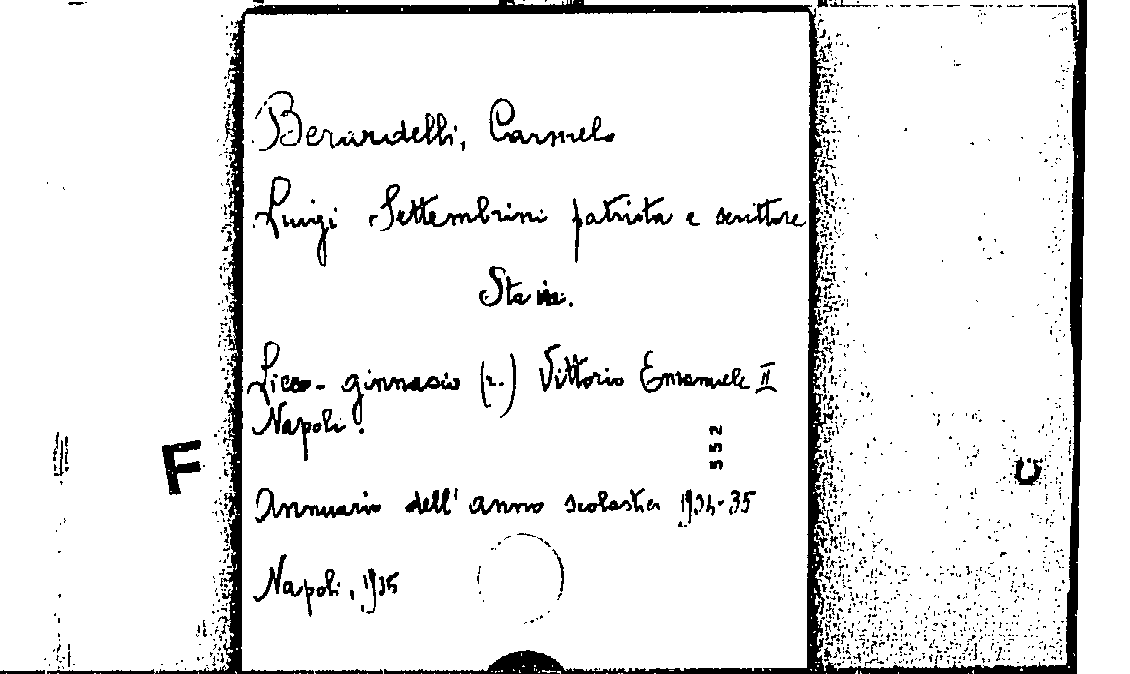 Berardelli, Carmelo
Luigi Settembrini patriota e scrittore
Liceo-ginnasio (r.) Vittorio Emanuele II
Napoli.
552
F
C
Annuario dell'anno scolastico 1934-35
Napoli, 1935